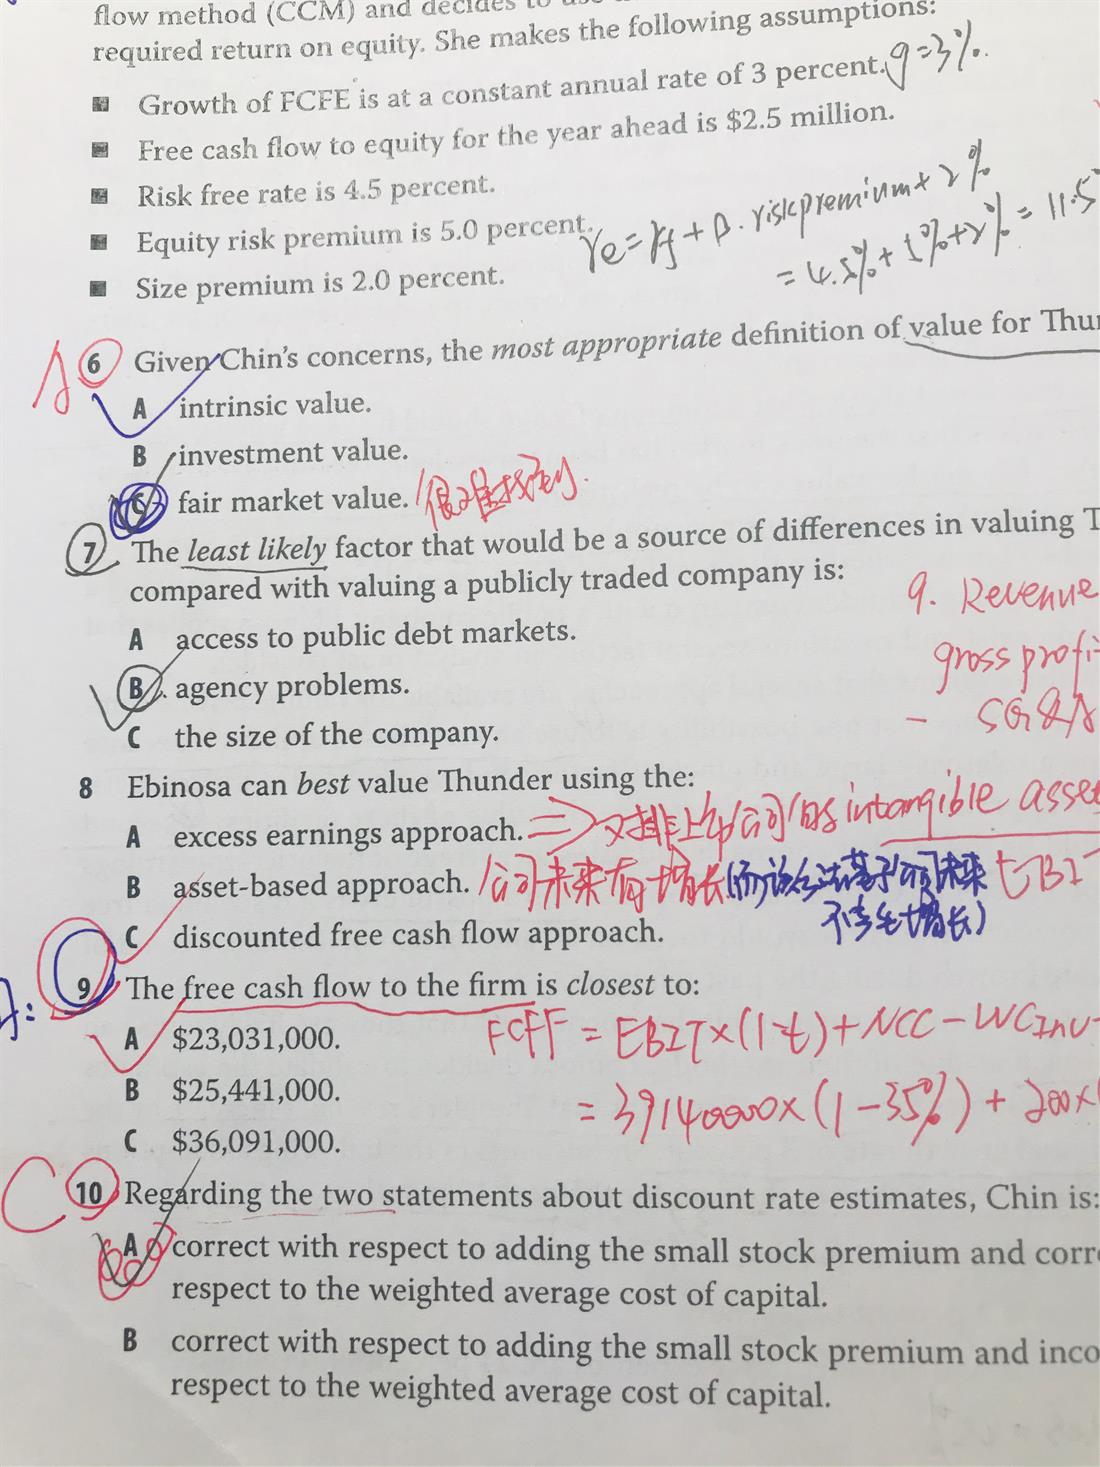 flow method (CCM) and decides to use
required return on equity. She makes the following assumptions:
Growth of FCFE is at a constant annual rate of 3 percent. g=3%.
Free cash flow to equity for the year ahead is $2.5 million.
Risk free rate is 4.5 percent.
Equity risk premium is 5.0 percent.
re=rf+β.risk premium+2%
=4.5%+5%+2%=11.5
Size premium is 2.0 percent.
A
6 Given Chin's concerns, the most appropriate definition of value for Thun
A intrinsic value.
B investment value.
C fair market value. /很难找到.
7 The least likely factor that would be a source of differences in valuing T
compared with valuing a publicly traded company is:
A access to public debt markets.
B agency problems.
C the size of the company.
9. Revenue
gross profi
- SG&A
8 Ebinosa can best value Thunder using the:
A excess earnings approach. ⇒ 公司的 intangible asse
B asset-based approach. /公司未来有增长 EBI
C discounted free cash flow approach.
9 The free cash flow to the firm is closest to:
A $23,031,000.
B $25,441,000.
C $36,091,000.
FCFF = EBIT×(1-t)+NCC-WCInv-
= 39140000×(1-35%)+200×
C
10 Regarding the two statements about discount rate estimates, Chin is:
A correct with respect to adding the small stock premium and corre
respect to the weighted average cost of capital.
B correct with respect to adding the small stock premium and inco
respect to the weighted average cost of capital.